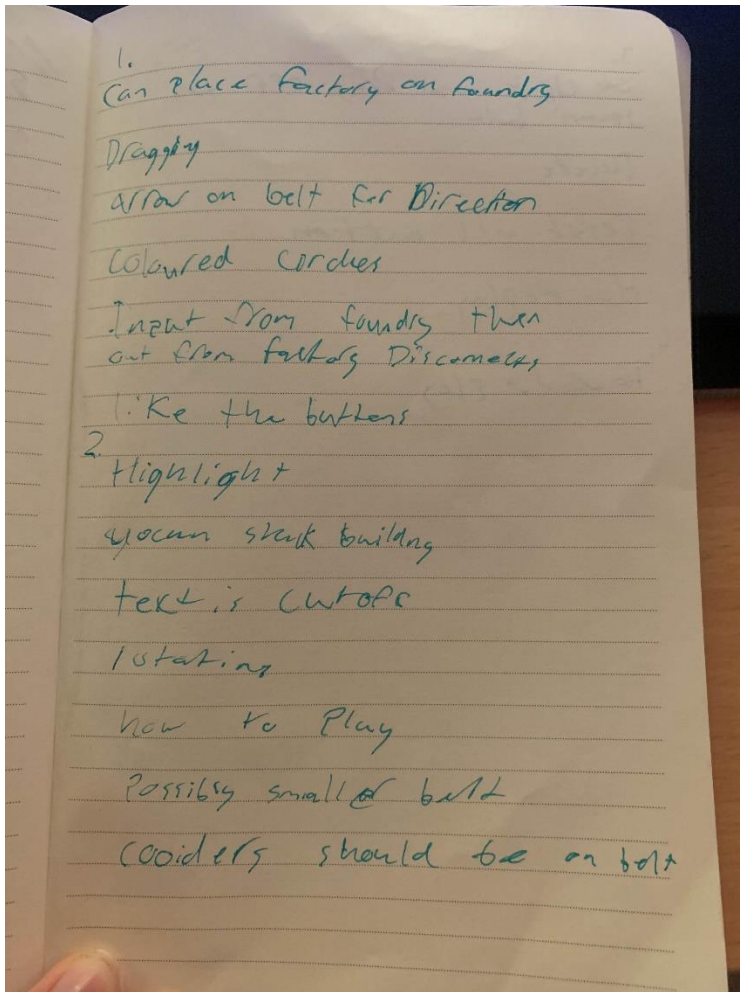 1.
Can place factory on foundry
Dragging
arrow on belt for Direction
Coloured
Input from foundry then
out from factory
like the buttons
2.
Highlight
stack building
text is cutoff
rotating
how to Play
Possibly smaller belt
should be on belt